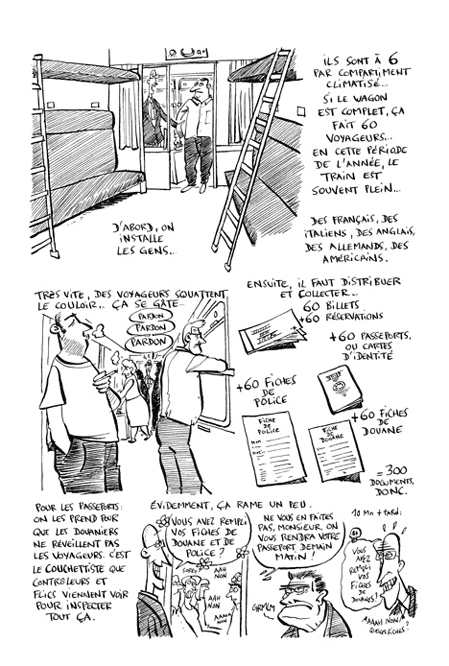 ILS SONT À 6
PAR COMPARTIMENT
CLIMATISÉ...
SI LE WAGON
EST COMPLET, ÇA
FAIT 60
VOYAGEURS...
EN CETTE PÉRIODE
DE L'ANNÉE, LE
TRAIN EST
SOUVENT PLEIN...
D'ABORD, ON
INSTALLE
LES GENS...
DES FRANÇAIS, DES
ITALIENS, DES ANGLAIS,
DES ALLEMANDS, DES
AMÉRICAINS.
TRÈS VITE, DES VOYAGEURS SQUATTENT
LE COULOIR.. ÇA SE GÂTE..
PARDON
PARDON
PARDON
ENSUITE, IL FAUT DISTRIBUER
ET COLLECTER..
60 BILLETS
+60 RÉSERVATIONS
+60 PASSEPORTS,
OU CARTES
D'IDENTITÉ
+60 FICHES
DE POLICE
FICHE
DE
POLICE
+60 FICHES
DE DOUANE
FICHE
DE DOUANE
= 300
DOCUMENTS,
DONC.
POUR LES PASSEPORTS:
ON LES PREND POUR
QUE LES DOUANIERS
NE RÉVEILLENT PAS
LES VOYAGEURS. C'EST
LE COUCHETTISTE QUE
CONTRÔLEURS ET
FLICS VIENNENT VOIR
POUR INSPECTER
TOUT ÇA.
ÉVIDEMMENT, ÇA RAME UN PEU.
VOUS AVEZ REMPLI
VOS FICHES DE
DOUANE ET DE
POLICE ?
SORRY
AAH
NON
AAH
NON
NE VOUS EN FAITES
PAS, MONSIEUR, ON
VOUS RENDRA VOTRE
PASSEPORT DEMAIN
MATIN !
10 MN + TARD:
VOUS
AVEZ
REMPLI
VOS
FICHES
DE
DOUANES ?
AAAAH NON!
QUELLES FICHES ?